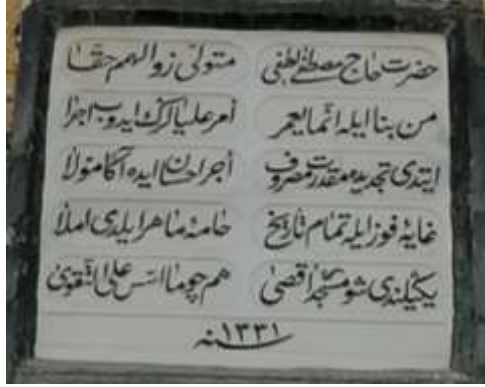 حضرت حاج مصطفی لطفی متولی زوالهم حقا
من بنا ایله انما یعمر امر علیالرك ایدوب اجرا
ایتدی تجدیده مقدرت مصروف أجر احسان ایده آكا مولا
غایهٔ فوز ایله تمام تاریخ خامهٔ ماهر ایلدی املا
یكیلندی شو مسجد أقصی هم چو ما اسس علی التقوی
سنه ١٣٣١